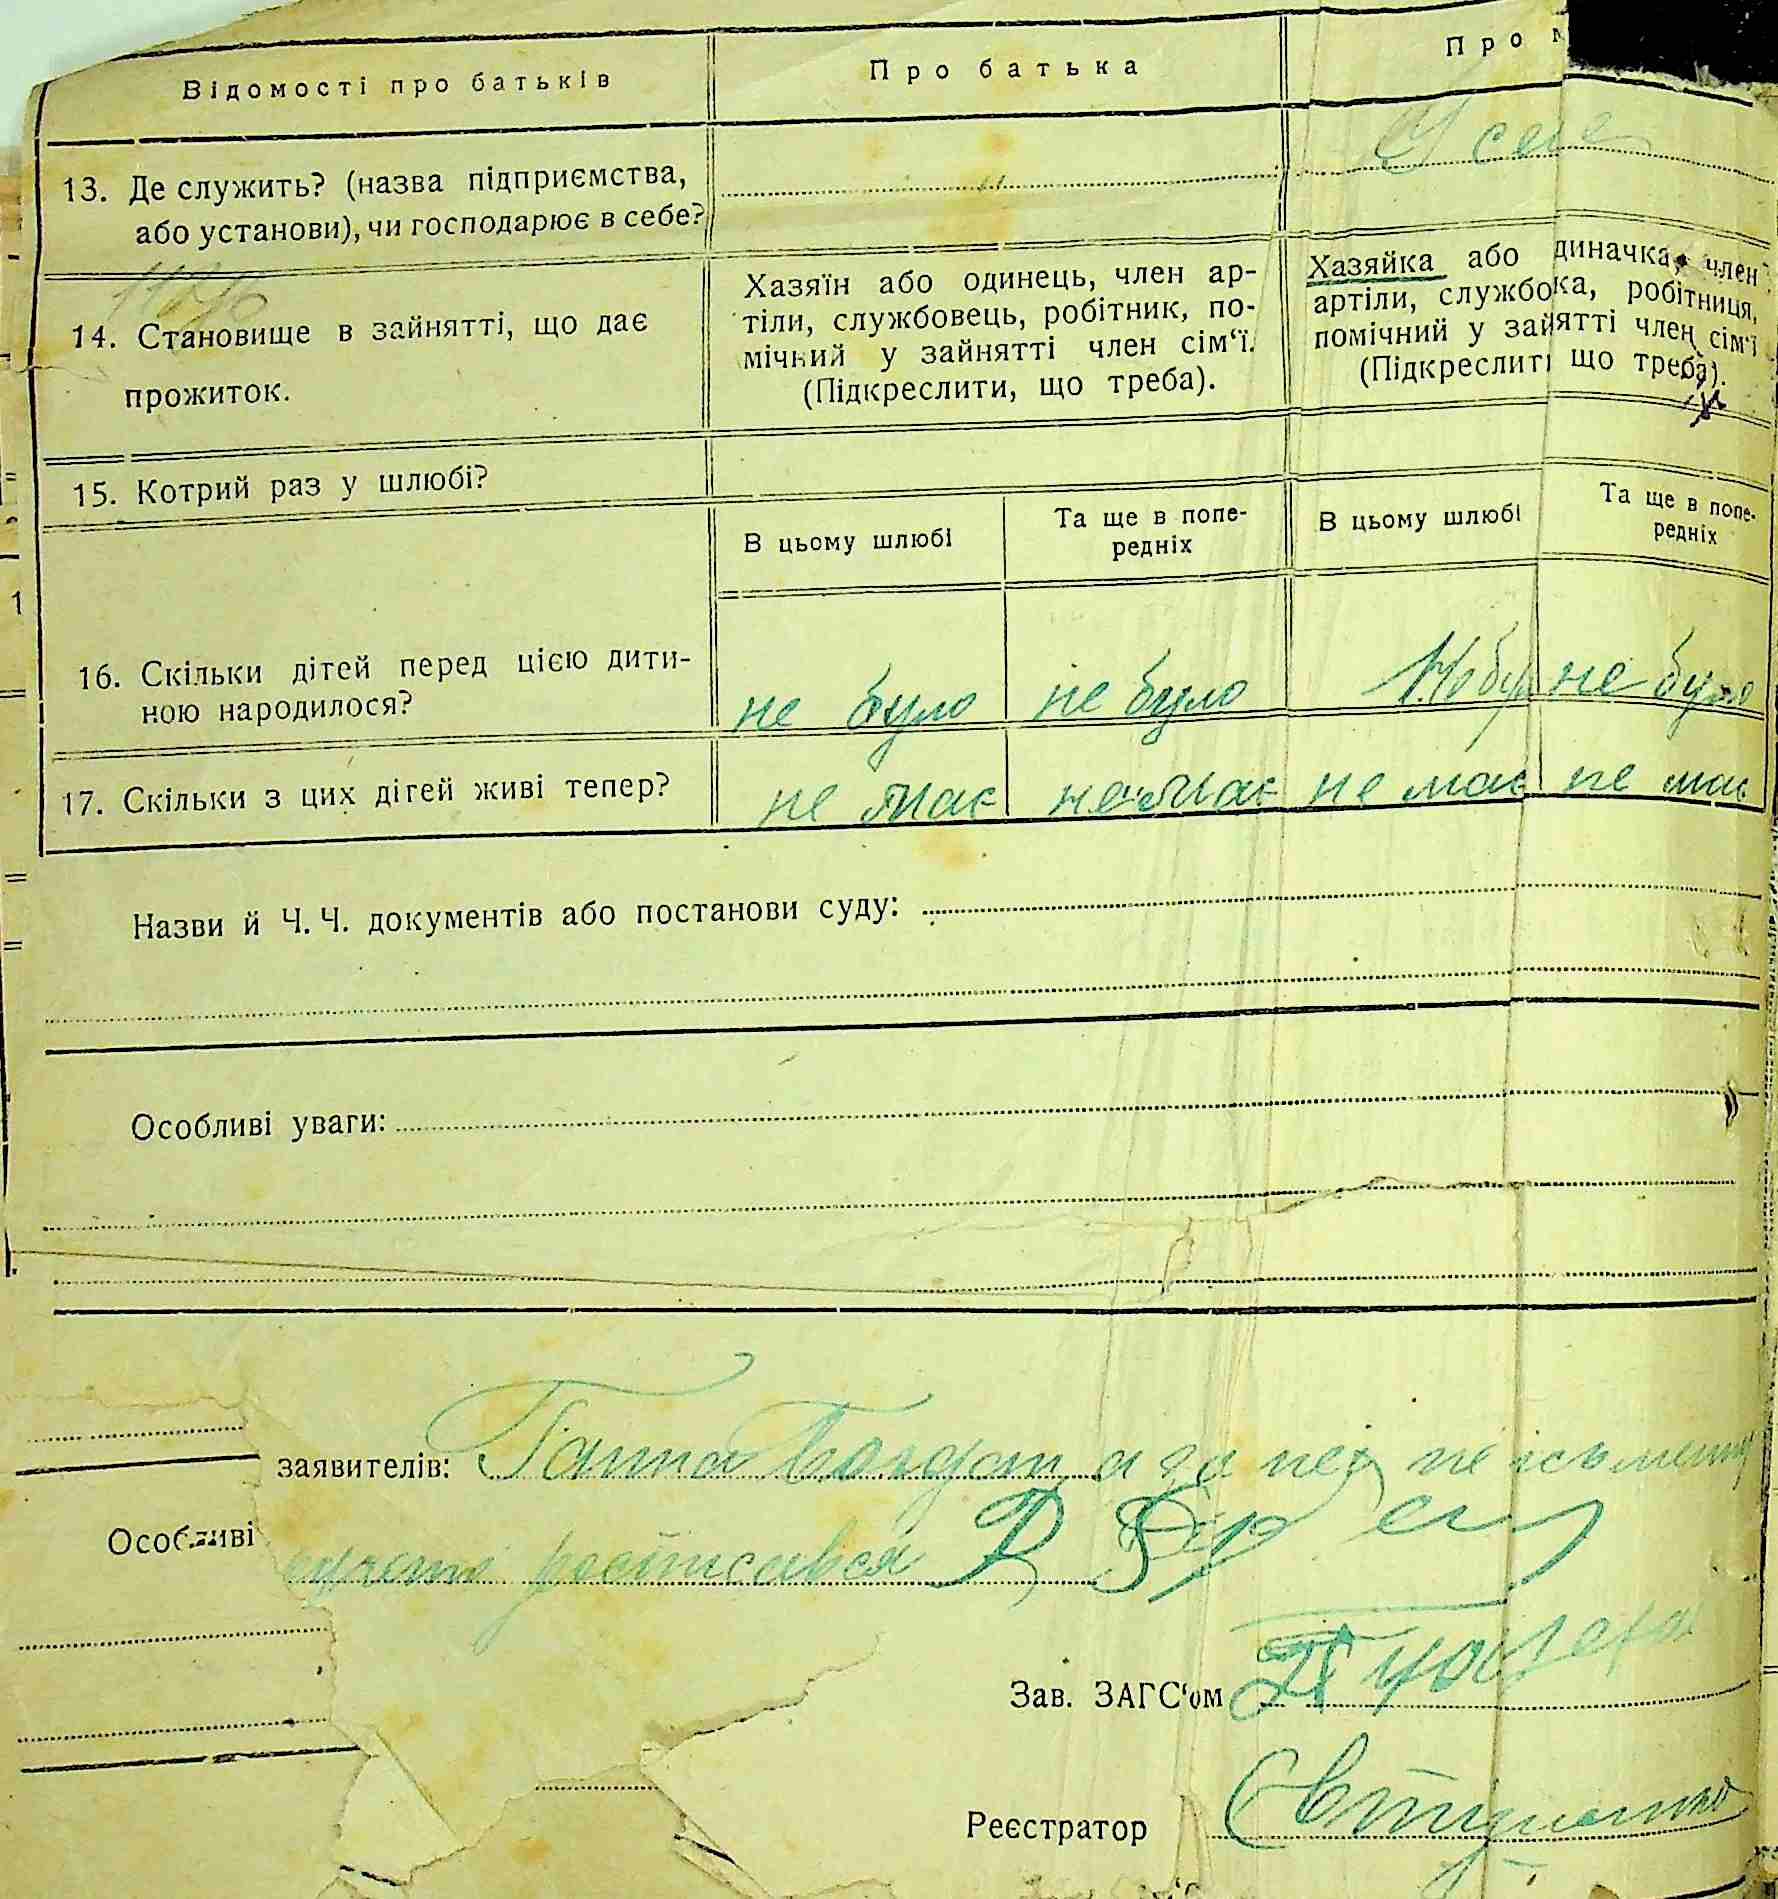 Відомості про батьків
Про батька
Про
13. Де служить? (назва підприємства,
або установи), чи господарює в себе?
У себе
14. Становище в зайнятті, що дає
прожиток.
Хазяїн або одинець, член ар-
тіли, службовець, робітник, по-
мічний у зайнятті член сім‘ї.
(Підкреслити, що треба).
Хазяйка або диначка, член
артіли, службока, робітниця,
помічний у зайнятті член сім‘ї
(Підкреслит що треба).
15. Котрий раз у шлюбі?
В цьому шлюбі
Та ще в попе-
редніх
В цьому шлюбі
Та ще в попе-
редніх
16. Скільки дітей перед цією дити-
ною народилося?
не було
не було
не було
17. Скільки з цих дітей живі тепер?
не має
не має
не має
не має
Назви й Ч. Ч. документів або постанови суду:
Особливі уваги:
заявителів: Ганна а за неї
Особливі
росписався
Зав. ЗАГС‘ом
Реєстратор